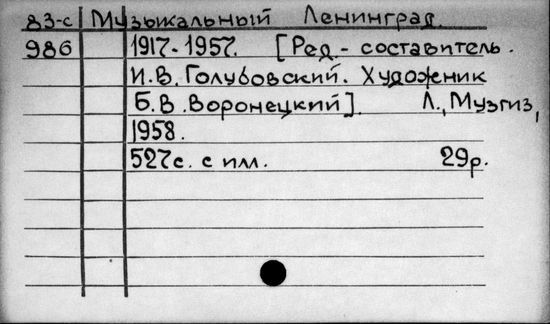 83-с Музыкальный Ленинград.
986 1917-1957. [Ред.-составитель.
И.В. Голубовский. Художник
Б.В. Воронецкий]. Л., Музгиз,
1958.
527с. с илл. 29р.